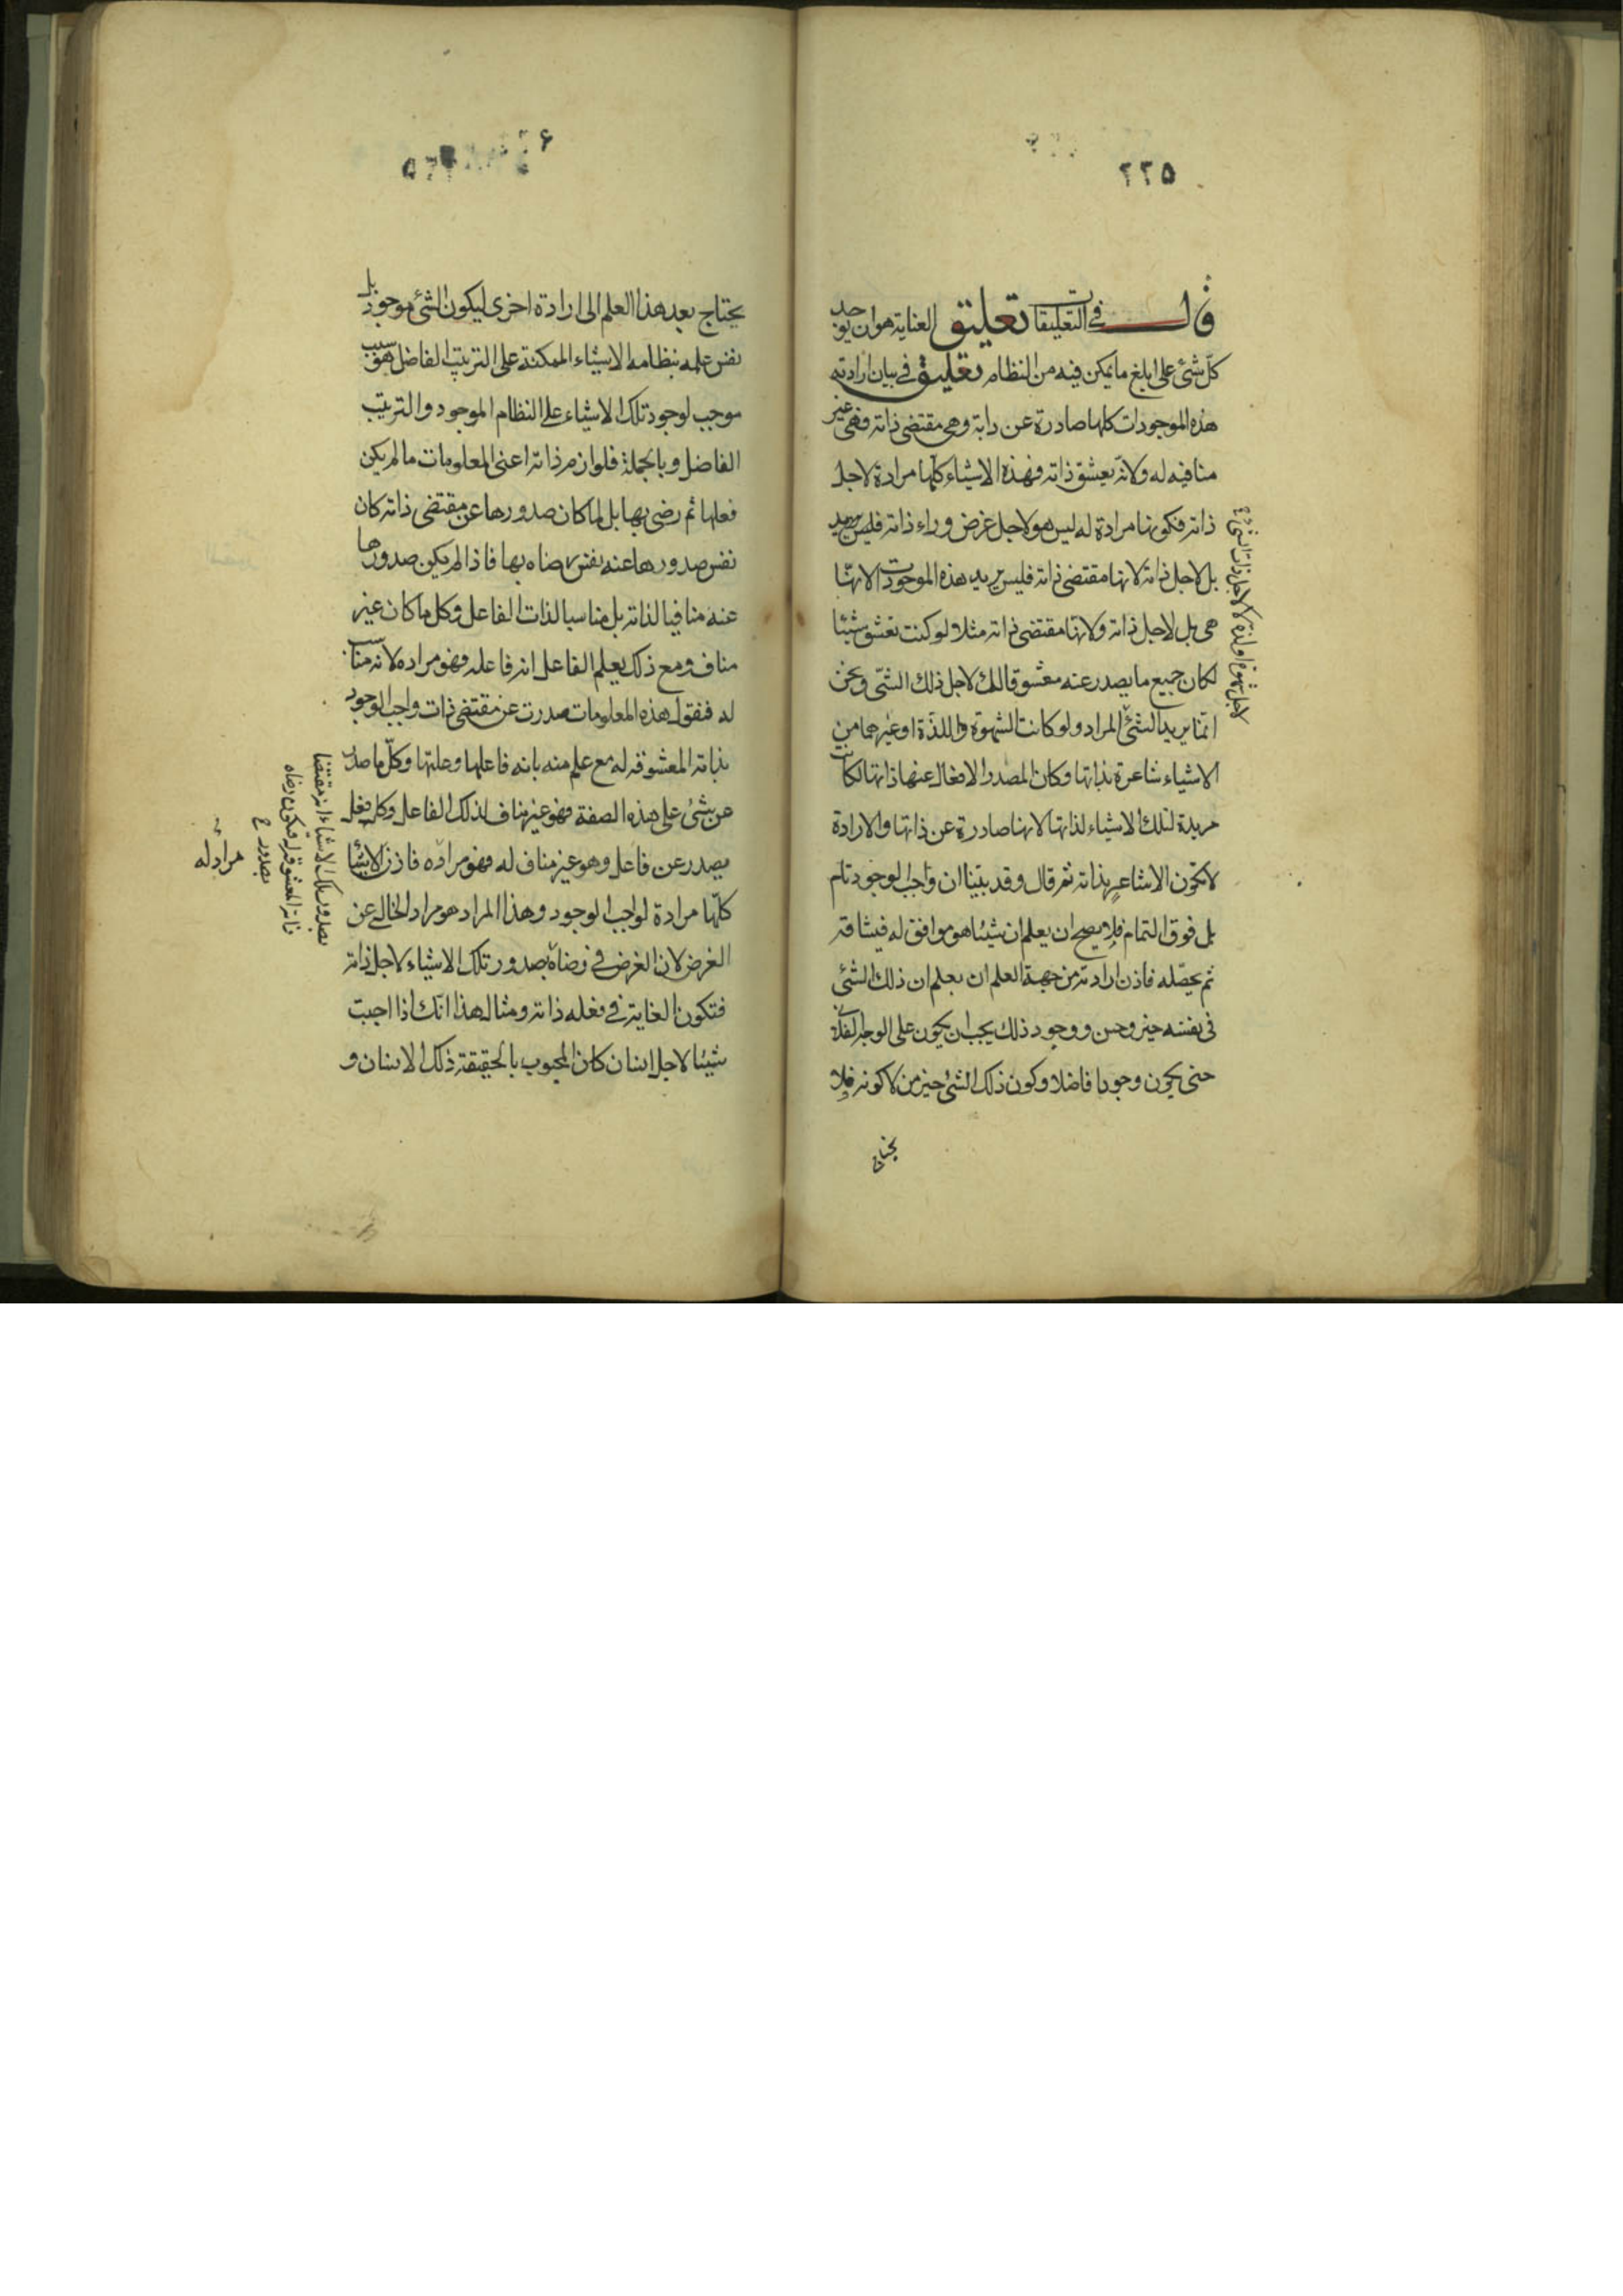 ٢٢٥
قال في التعليقات تعليق العناية هو ان يوجد
كلّ شئ على ابلغ ما يمكن فيه من النظام تعليق في بيان ارادته
هذه الموجودات كلها صادرة عن ذاته وهى مقتضى ذاته فهى غير
منافيه له ولانّه يعشق ذاته فهذه الاشياء كلّها مرادة لاجل
ذاته فكونها مرادة له ليس هو لاجل غرض وراء ذاته فليس يريد
بل لاجل ذاته لانها مقتضى ذاته فليس يريد هذه الموجودات لانهّا
هى بل لاجل ذاته ولانهّا مقتضى ذاته مثلا لو كنت تعشق شيئا
لكان جميع ما يصدر عنه معشوقا لك لاجل ذلك الشئ ونحن
انمّا يريد الشئ المراد ولو كانت الشهوة واللذّة او غيرهما من
الاشياء شاعرة بذاتها وكان المصدر الافعال عنها ذاتها لكانت
مريدة لتلك الاشياء لذاتها لانها صادرة عن ذاتها والارادة
لا تكون الا شاعر بذاته ثم قال وقد بيّنا ان واجب الوجود تام
بل فوق التمام فلا يصح ان يعلم ان شيئا هو موافق له فيشاقه
ثم يحصّله فاذن ارادته من جهة العلم ان يعلم ان ذلك الشئ
فى نفسه خير وحسن ووجود ذلك يجب ان يكون على الوجه الفلانى
حتى يكون وجودا فاضلا وكون ذلك الشئ خير من لا كونه فلا
لاجل شهوة او لذة لا لاجل ذات الشئ
يحتاج بعد هذا العلم الى ارادة اخرى ليكون الشئ موجودا بل
نفس علمه بنظامه الاشياء الممكنة على الترتيب الفاضل هو سبب
موجب لوجود تلك الاشياء على النظام الموجود والترتيب
الفاضل وبالجملة فلوازم ذاته اعنى المعلومات ما لم يكن
فعلها ثم رضى بها بل لما كان صدورها عن مقتضى ذاته كان
نفس صدورها عنه نفس رضاه بها فاذا لم يكن صدورها
عنه منافيا لذاته بل مناسبا لذات الفاعل وكل ما كان غير
مناف ومع ذلك يعلم الفاعل انه فاعله فهو مراده لانه مناسب
له فنقول هذه المعلومات صدرت عن مقتضى ذات واجب الوجود
بذاته المعشوقة له مع علم منه بانه فاعلها وعلتها وكلّ ما صدر
عن شئ على هذه الصفة فهو غير مناف لذلك الفاعل وكل فعل
يصدر عن فاعل وهو غير مناف له فهو مراده فاذن الاشيا
كلّها مرادة لواجب الوجود وهذا المراد هو مراد الخالى عن
الغرض لان الغرض فى رضاه بصدور تلك الاشياء لاجل ذاته
فتكون الغاية فى فعله ذاته ومثال هذا انّك اذا احببت
شيئا لاجل انسان كان المحبوب بالحقيقة ذلك الانسان و
بصدور تلك الاشياء انه مقتضا
ذاته المعشوقة له فيكون رضاه
بصدور
مراد له